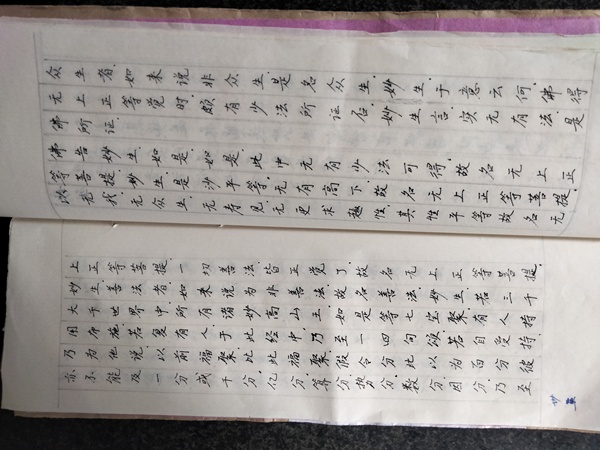 众生者.如来说非众生.是名众生.妙生.于意云何.佛得
无上正等觉时.颇有少法所证否.妙生言.实无有法是
佛所证.
佛告妙生.如是.如是.此中无有少法可得.故名无上正
等菩提.妙生.是法平等.无有高下.故名无上正等菩提.
以无我.无众生.无寿见.无更求趣性.其性平等.故名无
上正等菩提.一切善法.皆正觉了.故名无上正等菩提.
妙生.善法者.如来说为非善法.故名善法.妙生.若三千
大千世界中.所有诸妙高山王.如是等七宝聚.有人持
用布施.若复有人.于此经中.乃至一四句颂.若自受持.
及为他说.以前福聚.比此福聚.假令分此以为百分.彼
亦不能及一分.或千分.亿分.算分.势分.数分.因分.乃至